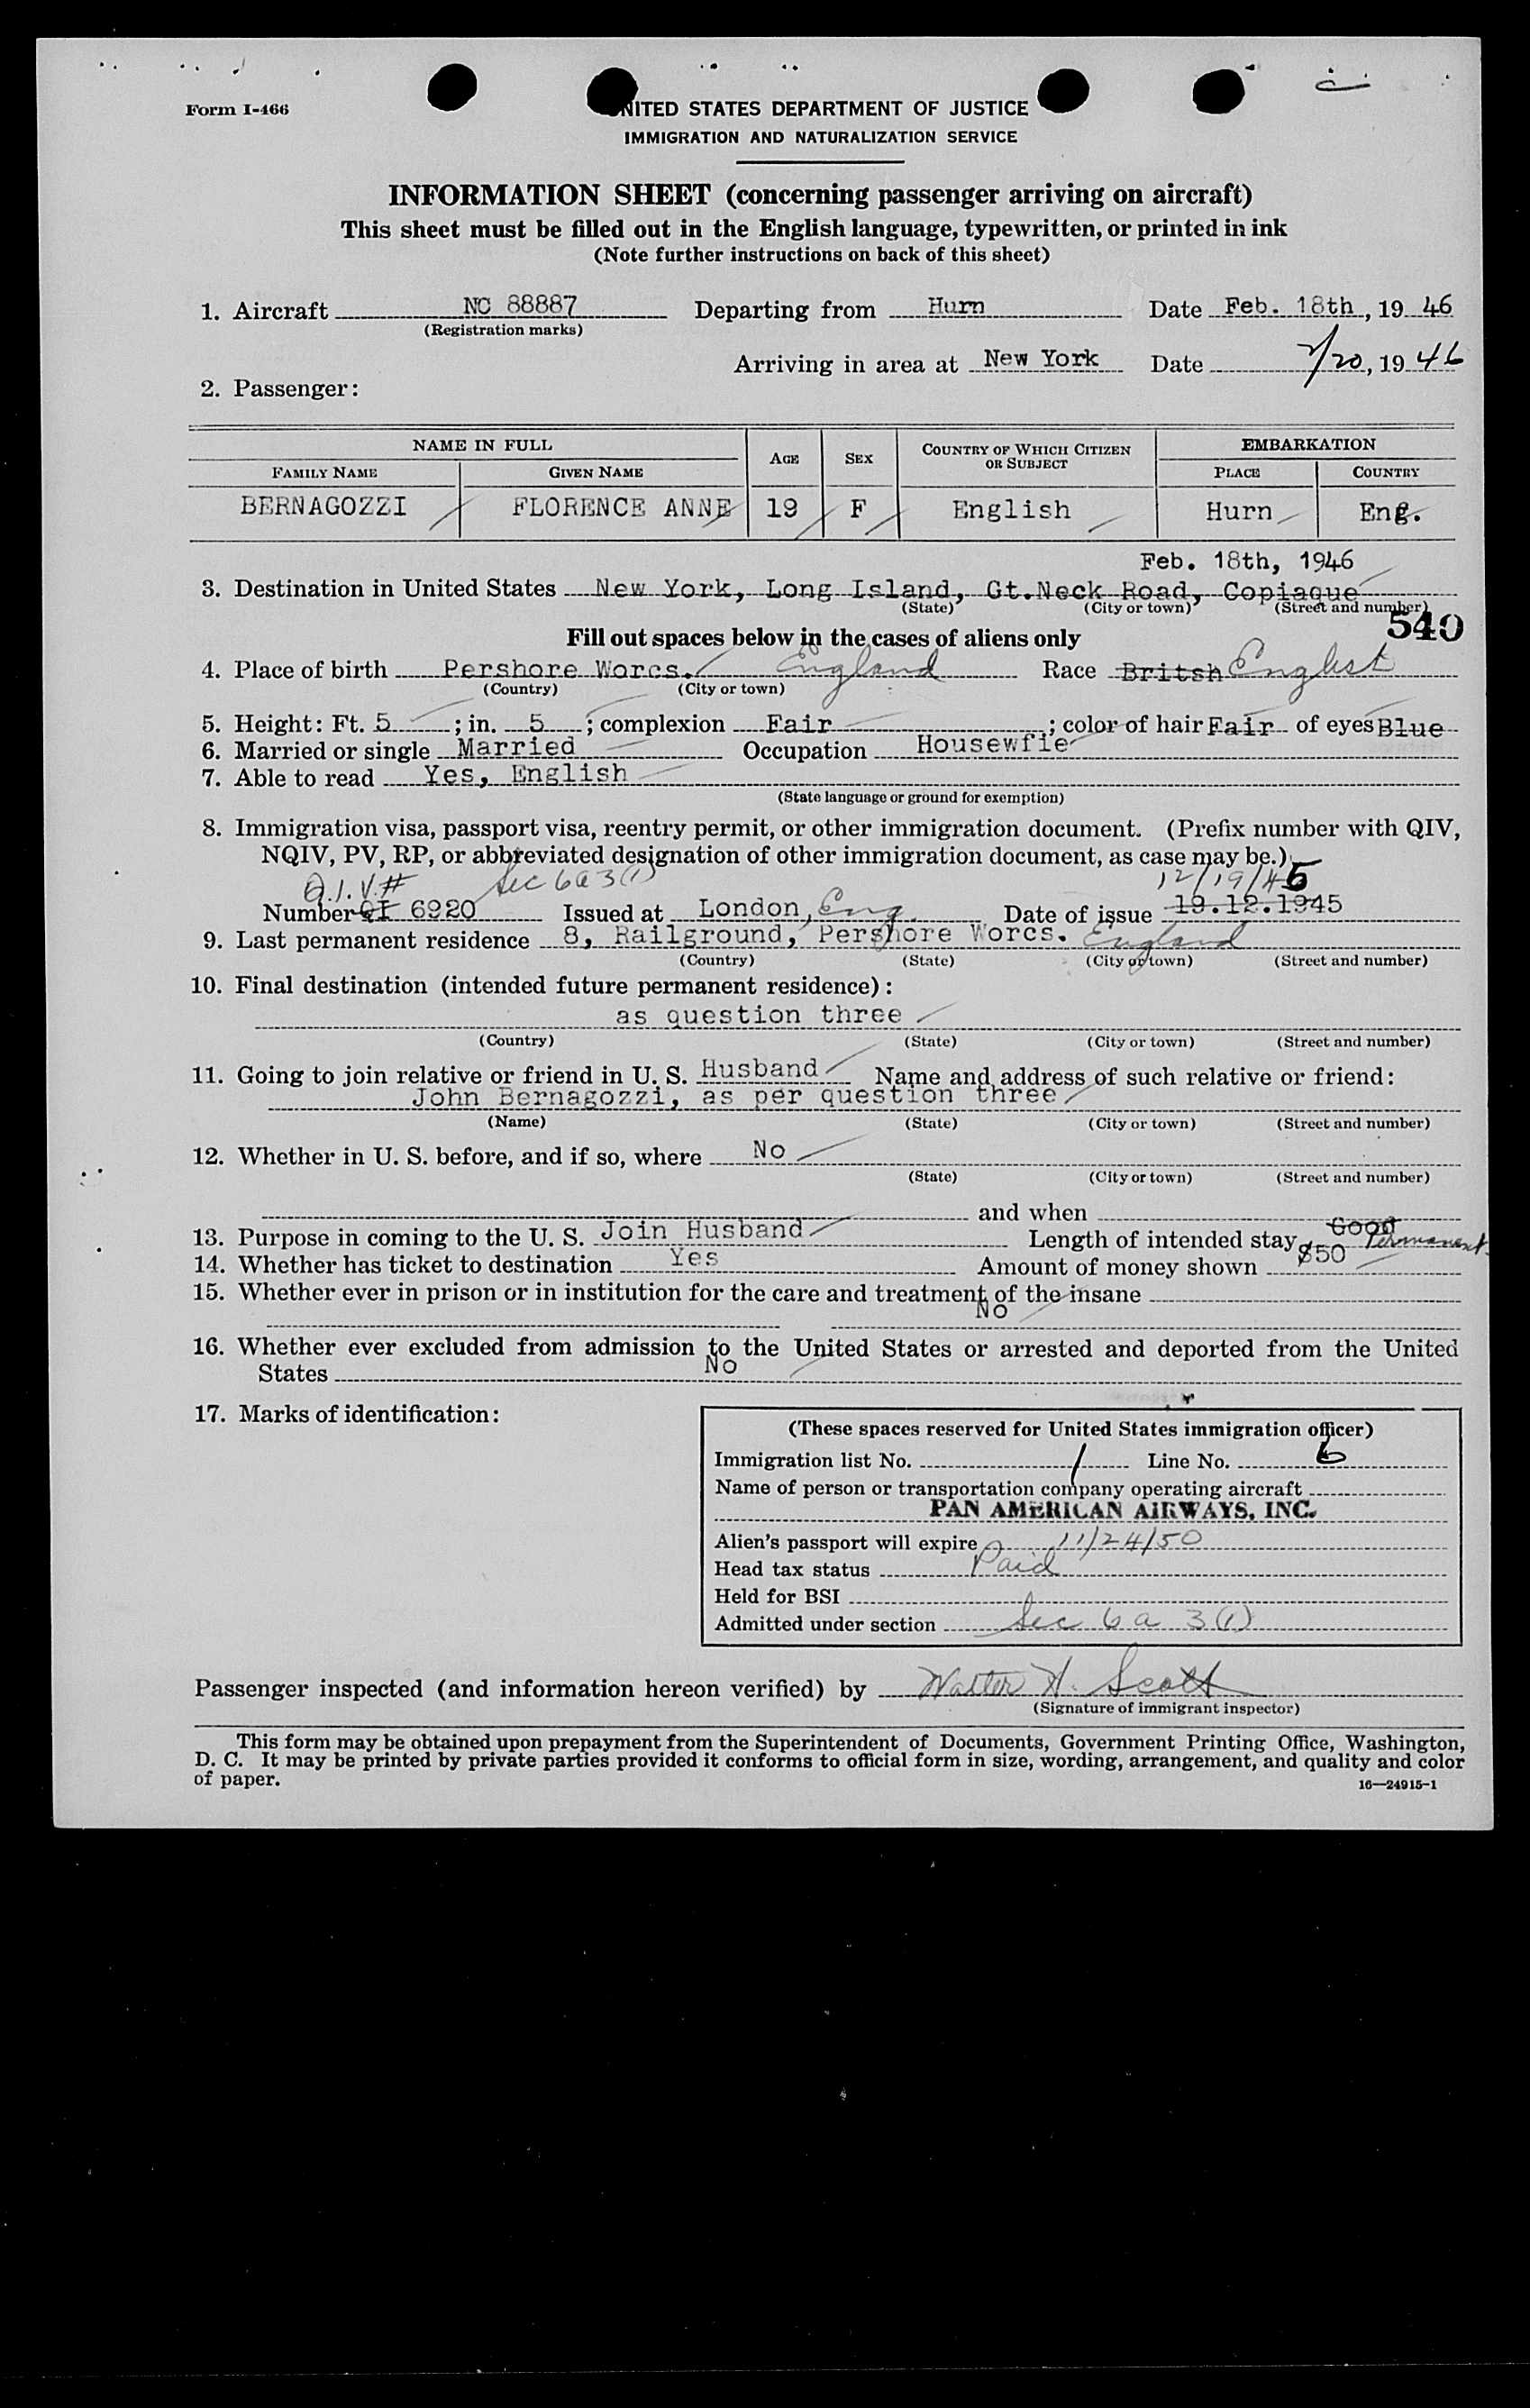 Form I-466
UNITED STATES DEPARTMENT OF JUSTICE
IMMIGRATION AND NATURALIZATION SERVICE
INFORMATION SHEET (concerning passenger arriving on aircraft)
This sheet must be filled out in the English language, typewritten, or printed in ink
(Note further instructions on back of this sheet)
1. Aircraft NC 88887 Departing from Hurn Date Feb. 18th, 19 46
(Registration marks)
Arriving in area at New York Date 2/20, 19 46
2. Passenger:
NAME IN FULL AGE SEX COUNTRY OF WHICH CITIZEN OR SUBJECT EMBARKATION
FAMILY NAME GIVEN NAME PLACE COUNTRY
BERNAGOZZI FLORENCE ANNE 19 F English Hurn Eng.
Feb. 18th, 1946
3. Destination in United States New York, Long Island, Gt.Neck Road, Copiague
(State) (City or town) (Street and number)
540
Fill out spaces below in the cases of aliens only
4. Place of birth Pershore Worcs. England Race Britsh English
(Country) (City or town)
5. Height: Ft. 5 ; in. 5 ; complexion Fair ; color of hair Fair of eyes Blue
6. Married or single Married Occupation Housewfie
7. Able to read Yes, English
(State language or ground for exemption)
8. Immigration visa, passport visa, reentry permit, or other immigration document. (Prefix number with QIV,
NQIV, PV, RP, or abbreviated designation of other immigration document, as case may be.)
Q.I.V.# Sec 6a3(1) 12/19/45
Number QI 6920 Issued at London, Eng. Date of issue 19.12.1945
9. Last permanent residence 8, Railground, Pershore Worcs. England
(Country) (State) (City or town) (Street and number)
10. Final destination (intended future permanent residence):
as question three
(Country) (State) (City or town) (Street and number)
11. Going to join relative or friend in U. S. Husband Name and address of such relative or friend:
John Bernagozzi, as per question three
(Name) (State) (City or town) (Street and number)
12. Whether in U. S. before, and if so, where No
(State) (City or town) (Street and number)
and when
13. Purpose in coming to the U. S. Join Husband Length of intended stay Good Permanent
14. Whether has ticket to destination Yes Amount of money shown $50
15. Whether ever in prison or in institution for the care and treatment of the insane
No
16. Whether ever excluded from admission to the United States or arrested and deported from the United
States No
17. Marks of identification:
(These spaces reserved for United States immigration officer)
Immigration list No. 1 Line No. 6
Name of person or transportation company operating aircraft
PAN AMERICAN AIRWAYS, INC.
Alien's passport will expire 11/24/50
Head tax status Paid
Held for BSI
Admitted under section Sec 6a 3(1)
Passenger inspected (and information hereon verified) by Walter H. Scott
(Signature of immigrant inspector)
This form may be obtained upon prepayment from the Superintendent of Documents, Government Printing Office, Washington,
D. C. It may be printed by private parties provided it conforms to official form in size, wording, arrangement, and quality and color
of paper.
16—24915-1